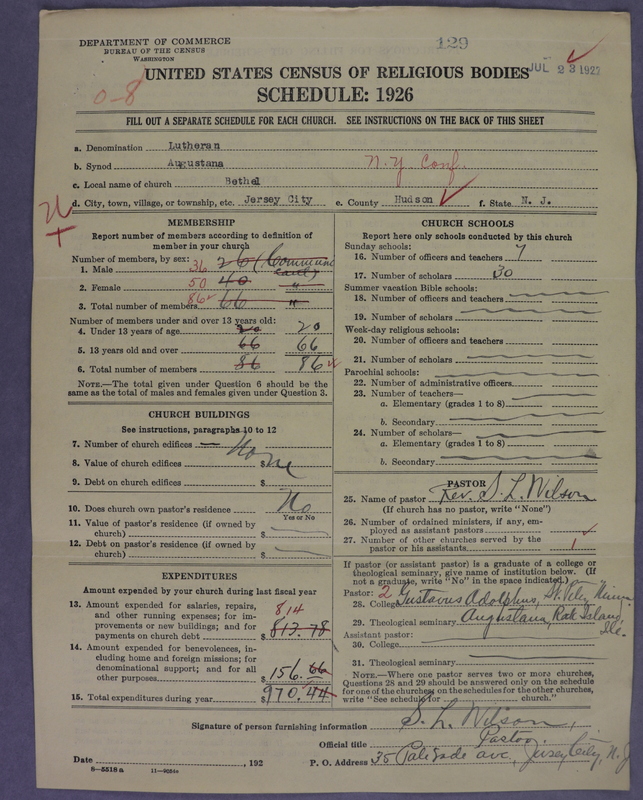 DEPARTMENT OF COMMERCE
BUREAU OF THE CENSUS
WASHINGTON
129
JUL 23 1927
UNITED STATES CENSUS OF RELIGIOUS BODIES
0-8
SCHEDULE: 1926
FILL OUT A SEPARATE SCHEDULE FOR EACH CHURCH. SEE INSTRUCTIONS ON THE BACK OF THIS SHEET
a. Denomination Lutheran
b. Synod Augustana N.Y. Conf.
c. Local name of church Bethel
d. City, town, village, or township, etc. Jersey City e. County Hudson f. State N. J.
MEMBERSHIP
Report number of members according to definition of
member in your church
Number of members, by sex:
1. Male 36 26
2. Female 50 40 "
3. Total number of members 86 66 "
Number of members under and over 13 years old:
4. Under 13 years of age 20 20
5. 13 years old and over 66 66
6. Total number of members 86 86
NOTE.—The total given under Question 6 should be the
same as the total of males and females given under Question 3.
CHURCH BUILDINGS
See instructions, paragraphs 10 to 12
7. Number of church edifices None
8. Value of church edifices $
9. Debt on church edifices $
10. Does church own pastor's residence No
Yes or No
11. Value of pastor's residence (if owned by
church) $
12. Debt on pastor's residence (if owned by
church) $
EXPENDITURES
Amount expended by your church during last fiscal year
13. Amount expended for salaries, repairs,
and other running expenses; for im-
provements or new buildings; and for
payments on church debt $ 814 813.78
14. Amount expended for benevolences, in-
cluding home and foreign missions; for
denominational support; and for all
other purposes $ 156.66
15. Total expenditures during year $ 970.44
CHURCH SCHOOLS
Report here only schools conducted by this church
Sunday schools:
16. Number of officers and teachers 7
17. Number of scholars 30
Summer vacation Bible schools:
18. Number of officers and teachers
19. Number of scholars
Week-day religious schools:
20. Number of officers and teachers
21. Number of scholars
Parochial schools:
22. Number of administrative officers
23. Number of teachers—
a. Elementary (grades 1 to 8)
b. Secondary
24. Number of scholars—
a. Elementary (grades 1 to 8)
b. Secondary
PASTOR
25. Name of pastor Rev. S. L. Wilson
(If church has no pastor, write "None")
26. Number of ordained ministers, if any, em-
ployed as assistant pastors
27. Number of other churches served by the
pastor or his assistants 1
If pastor (or assistant pastor) is a graduate of a college or
theological seminary, give name of institution below. (If
not a graduate, write "No" in the space indicated.)
Pastor: 2
28. College Gustavus Adolphus, St. Peter, Minn.
29. Theological seminary Augustana, Rock Island, Ill.
Assistant pastor:
30. College
31. Theological seminary
NOTE.—Where one pastor serves two or more churches,
Questions 28 and 29 should be answered only on the schedule
for one of the churches; on the schedules for the other churches,
write "See schedule for church."
Signature of person furnishing information S. L. Wilson,
Official title Pastor
Date , 192 P. O. Address 35 Palisade ave., Jersey City, N. J.
8-5518 a 11-9056a